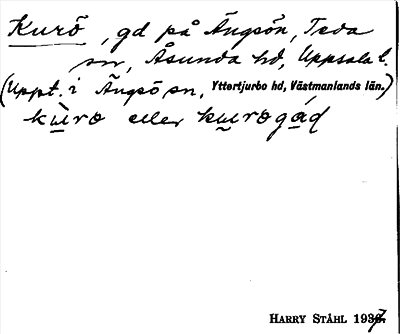 Kurö, gd på Ängsön, Teda
sn, Åsunda hd, Uppsala l.
(Uppt. i Ängsö sn, Yttertjurbo hd, Västmanlands län.)
kùrᴏ eller kurᴏgáɖ
HARRY STÅHL 1937.